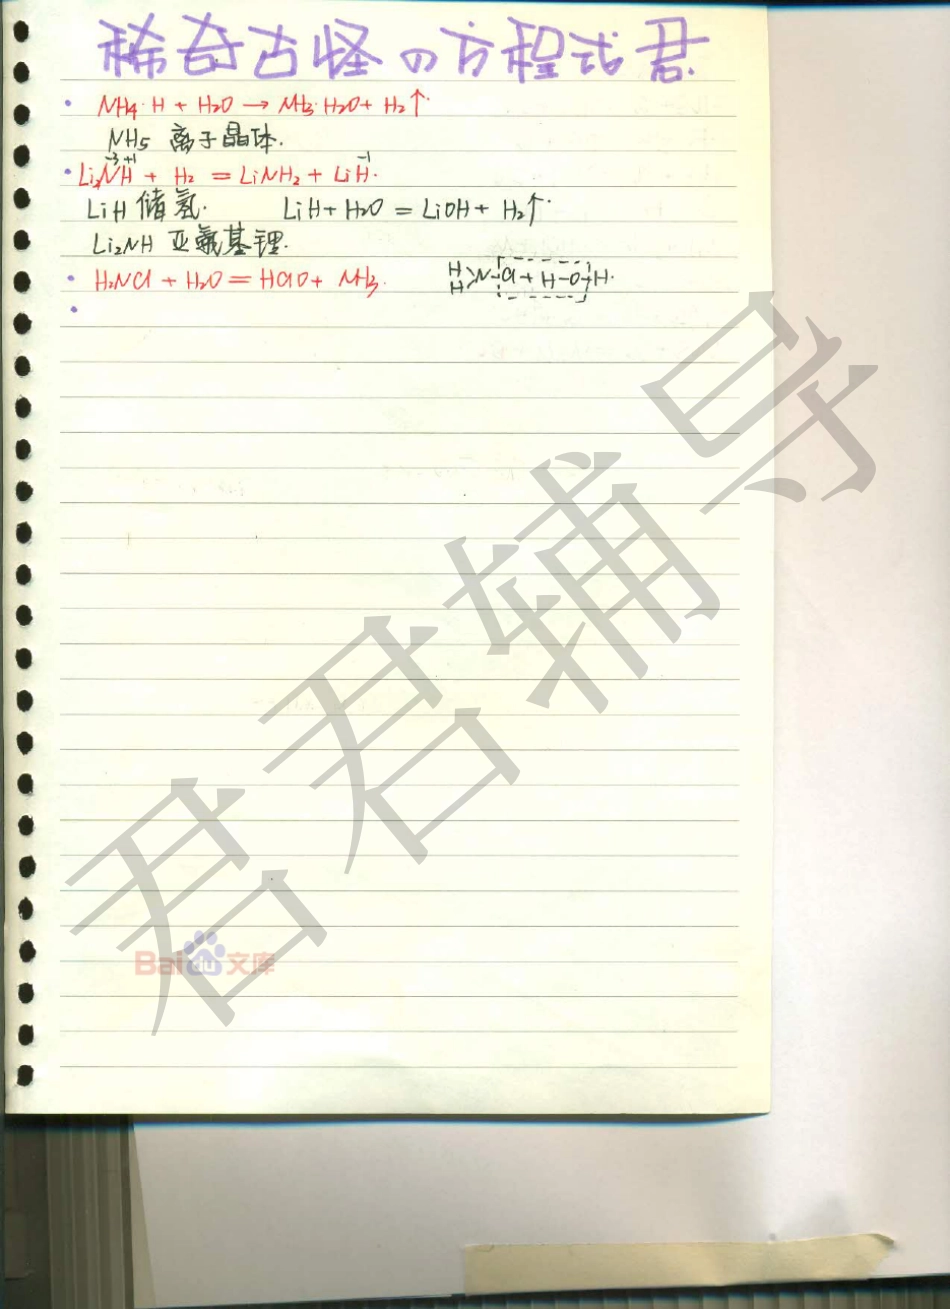 稀奇古怪の方程式君.
• NH4·H + H2O → NH3·H2O + H2↑.
NH5 离子晶体.
-3 +1 -1
• Li2NH + H2 = LiNH2 + LiH.
LiH 储氢. LiH + H2O = LiOH + H2↑.
Li2NH 亚氨基锂.
• H2NCl + H2O = HClO + NH3. H H >N-Cl + H-O-H.
•
君君辅导
Baidu文库